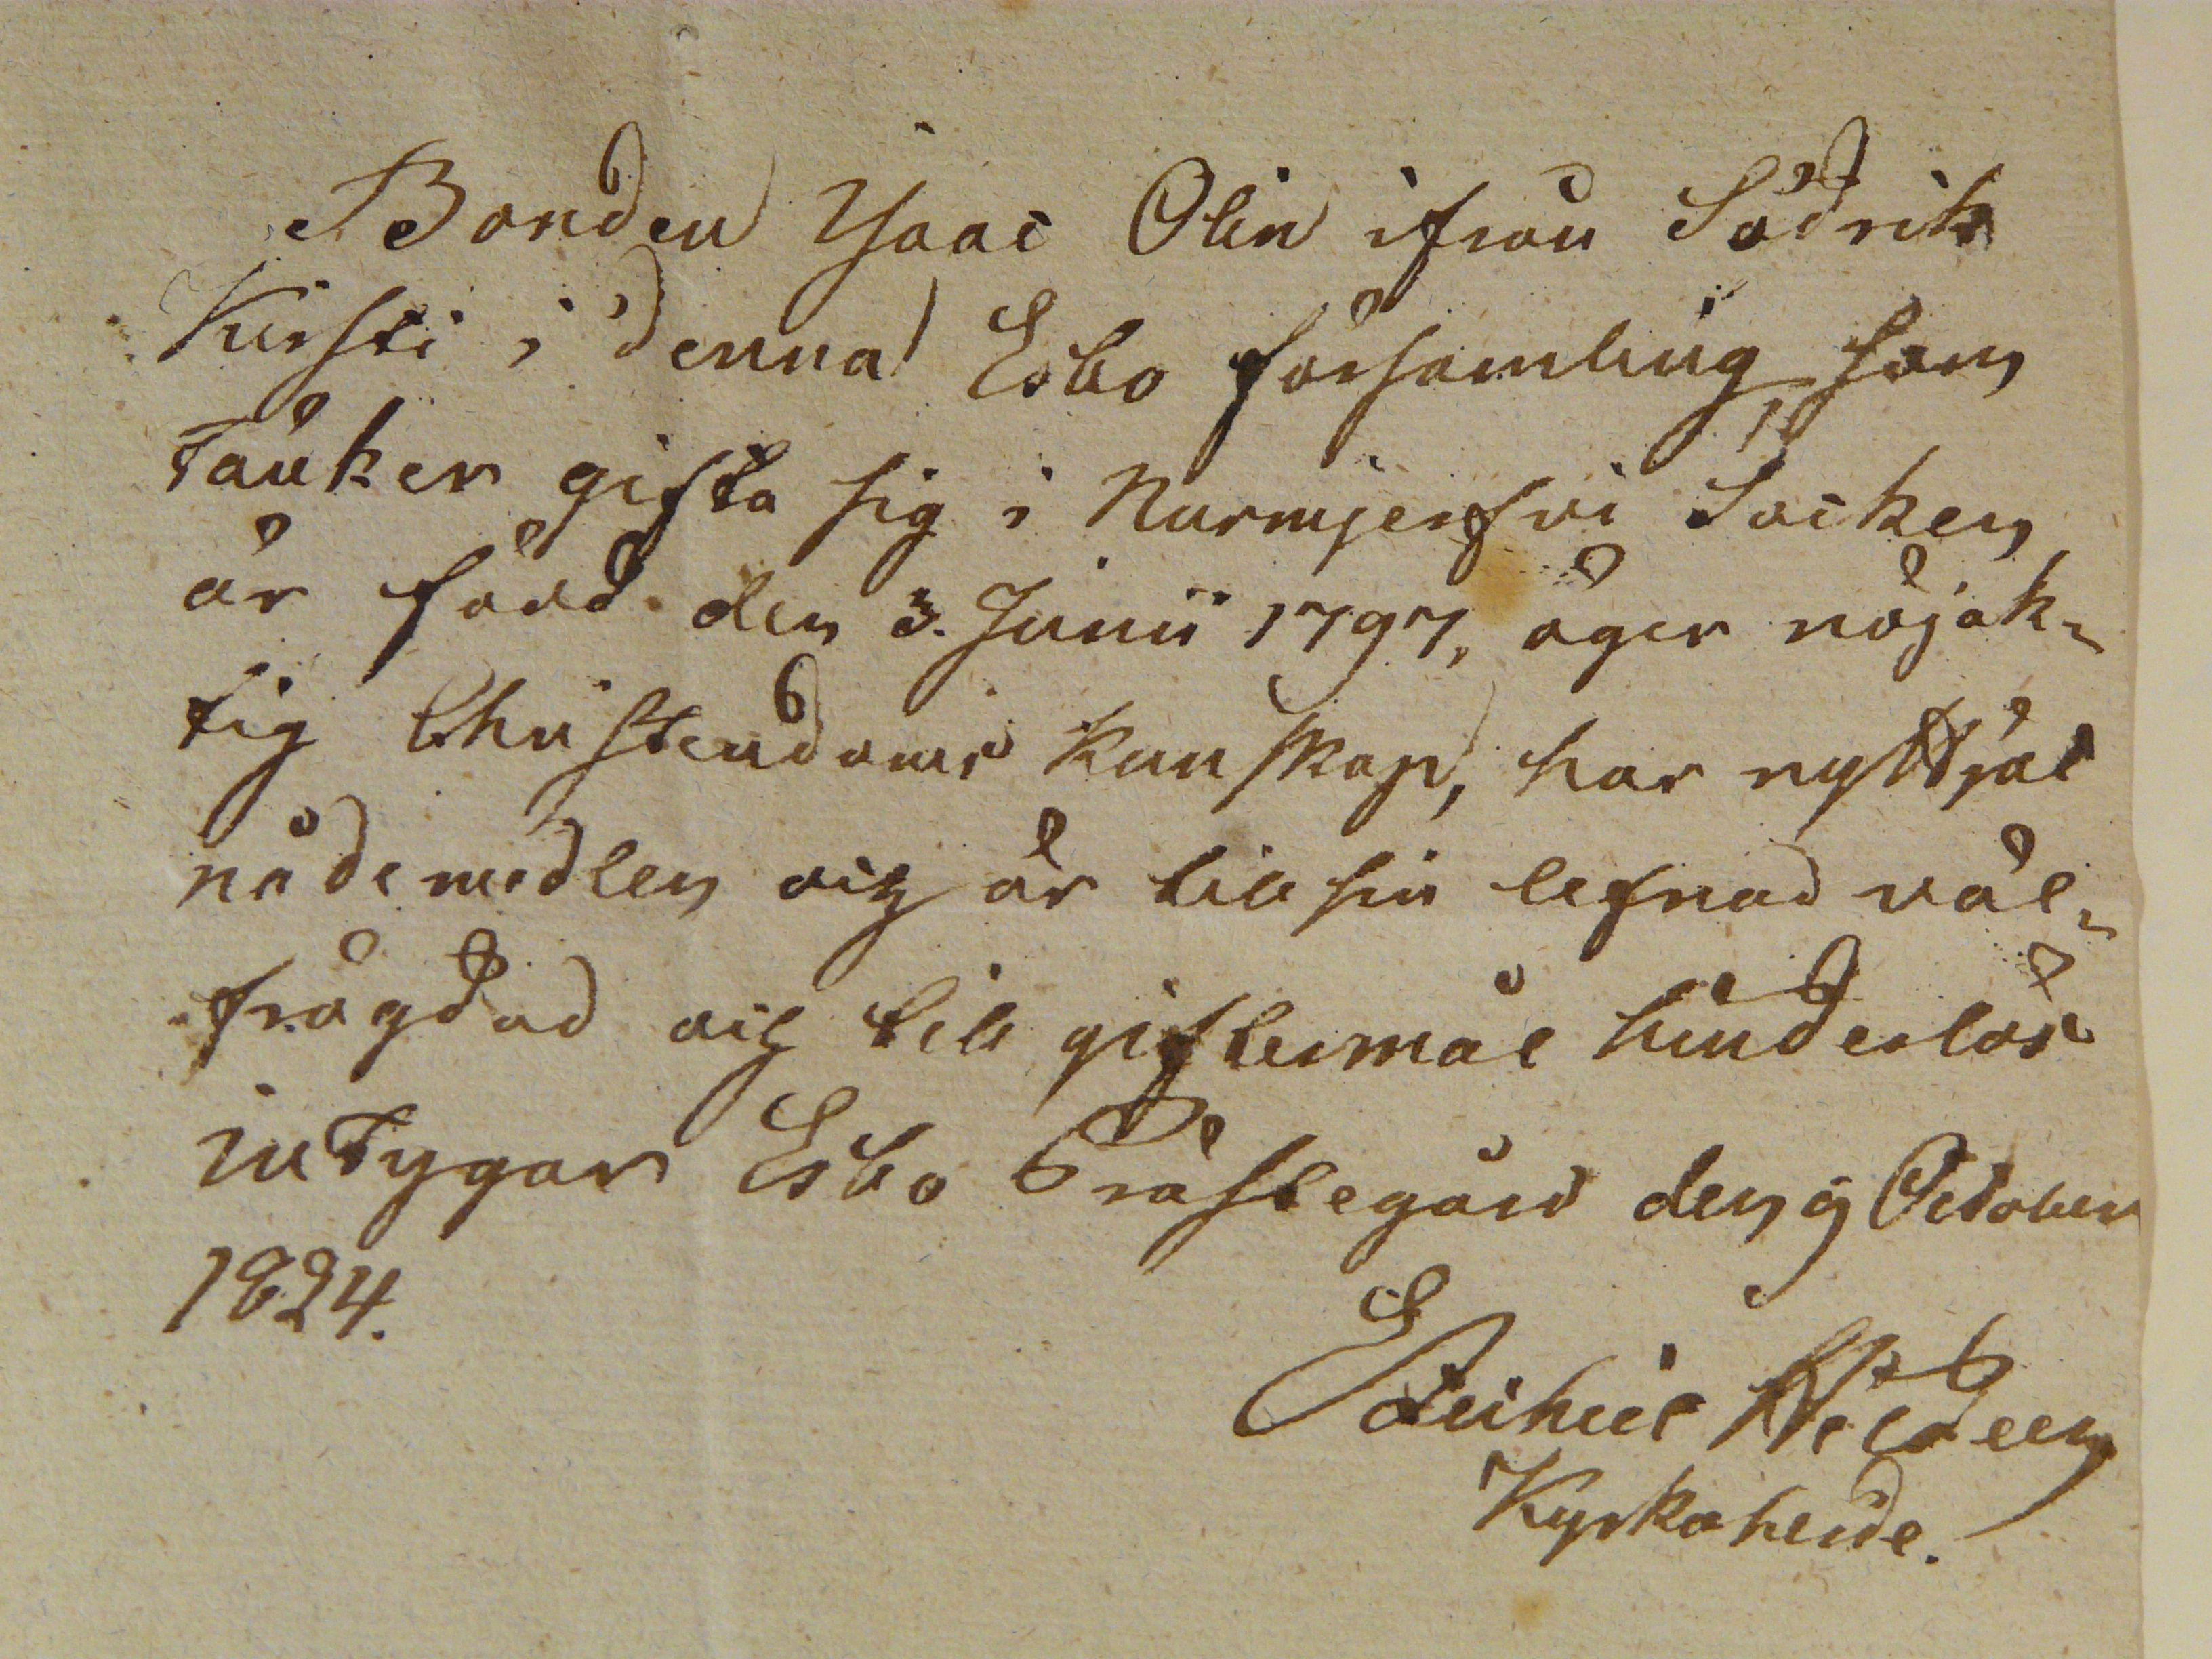 Bonden Isaac Olin ifrån Södrik
Kirsti i denna Esbo församling, som
Tänker gifta sig i Nurmijerfvi Socken
är född den 3. Junii 1797, äger nöjak-
tig Christendoms Kunskap, har nyttjat
nådemedlen och är till sin lefnad väl-
frägdad och till giftermål hinderlös
intygar Esbo Prästegård den 9 October
1824.
Kyrkoherde.